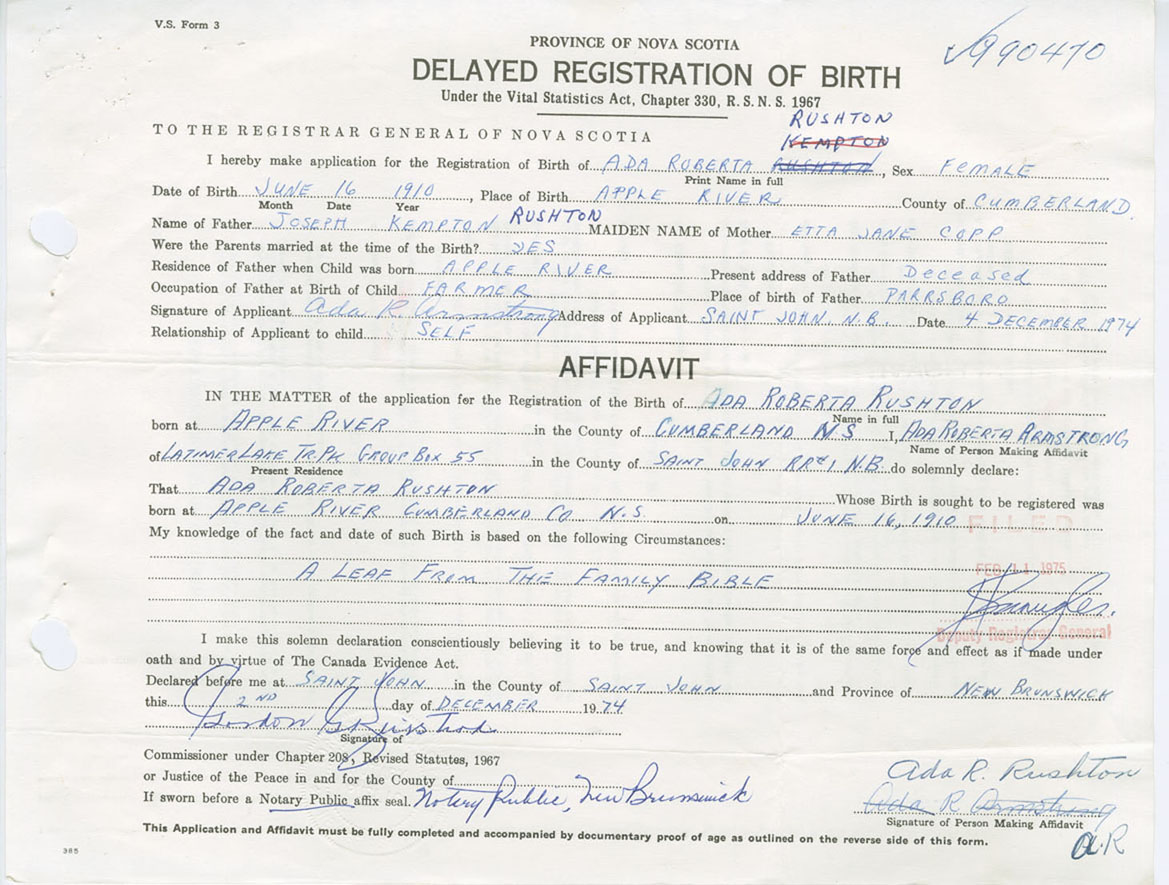 V.S. Form 3
990470
PROVINCE OF NOVA SCOTIA
DELAYED REGISTRATION OF BIRTH
Under the Vital Statistics Act, Chapter 330, R.S.N.S. 1967
RUSHTON
TO THE REGISTRAR GENERAL OF NOVA SCOTIA
KEMPTON
I hereby make application for the Registration of Birth of ADA ROBERTA RUSHTON, Sex FEMALE
Print Name in full
Date of Birth JUNE 16 1910, Place of Birth APPLE RIVER County of CUMBERLAND
Month Date Year
Name of Father JOSEPH KEMPTON RUSHTON MAIDEN NAME of Mother ETTA JANE COPP
Were the Parents married at the time of the Birth? YES
Residence of Father when Child was born APPLE RIVER Present address of Father Deceased
Occupation of Father at Birth of Child FARMER Place of birth of Father PARRSBORO
Signature of Applicant Ada R. Armstrong Address of Applicant SAINT JOHN, N.B. Date 4 DECEMBER 1974
Relationship of Applicant to child SELF
AFFIDAVIT
IN THE MATTER of the application for the Registration of the Birth of ADA ROBERTA RUSHTON
Name in full
born at APPLE RIVER in the County of CUMBERLAND N S I, ADA ROBERTA ARMSTRONG
Name of Person Making Affidavit
of LATIMER LAKE TR. PK GROUP BOX 55 in the County of SAINT JOHN RR#1 N.B. do solemnly declare:
Present Residence
That ADA ROBERTA RUSHTON Whose Birth is sought to be registered was
born at APPLE RIVER CUMBERLAND CO N.S. on JUNE 16, 1910
FILED
My knowledge of the fact and date of such Birth is based on the following Circumstances:
FEB 1975
A LEAF FROM THE FAMILY BIBLE
Deputy Registrar General
I make this solemn declaration conscientiously believing it to be true, and knowing that it is of the same force and effect as if made under
oath and by virtue of The Canada Evidence Act.
Declared before me at SAINT JOHN in the County of SAINT JOHN and Province of NEW BRUNSWICK
this 2ND day of DECEMBER 1974
Signature of
Commissioner under Chapter 208, Revised Statutes, 1967
or Justice of the Peace in and for the County of
Ada R. Rushton
If sworn before a Notary Public affix seal. Notary Public, New Brunswick
Ada R Armstrong
Signature of Person Making Affidavit
This Application and Affidavit must be fully completed and accompanied by documentary proof of age as outlined on the reverse side of this form.
a.R
385